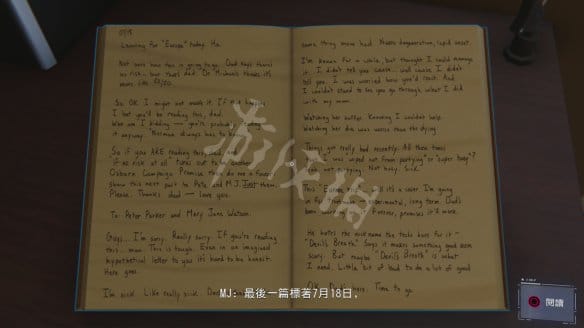 07/18
Leaving for "Europe" today. Ha.
Not sure how this is going to go. Dad says there's
no risk - but
So OK. I might not make it. If
I bet you'll be reading this, dad.
Who am I kidding - you're probably
it anyway. Norman always has to
So if you ARE reading this, dad,
if "no risk at all" turns out to be another
Osborn Campaign Promise
show this next part to Pete and MJ. Just them.
Please. Thanks dad - love you.
To: Peter Parker and Mary Jane Watson.
Guys... I'm sorry. Really sorry. If you're reading
this... man. This is tough. Even in an imagined
hypothetical letter to you it's hard to be honest.
Here goes.
I'm sick. Like really sick.
same thing mom had.
I've known for a while, but thought I could manage
it. I didn't tell you cause... well cause I didn't
tell you. I was worried how you'd react. And
I couldn't stand to see you go through what I did
with my mom.
Watching her suffer. Knowing I couldn't help.
Watching her die was worse than the dying.
Things got really bad recently. All those times
I was wiped out from partying or "super busy"?
I was not partying. Not busy. Sick.
This "Europe
He hates the nickname the techs gave for it -
"Devil's Breath." Says it makes something good seem
scary. But maybe "Devil's Breath" is what
I need. Little bit of bad to do a lot of good.
OK.
Time to go.
游侠网
MJ：最後一篇標著7月18日，
閱讀